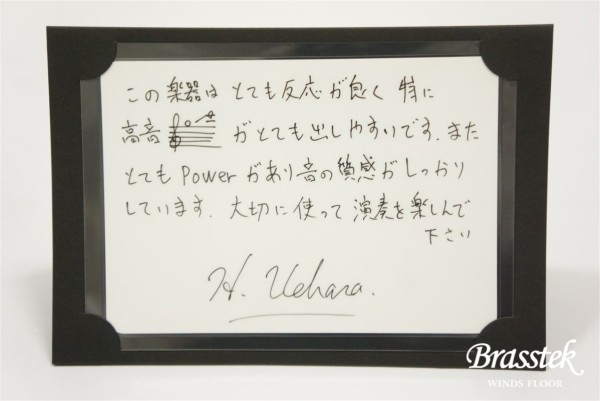 この楽器はとても反応が良く 特に
高音 がとても出しやすいです. また
とても Power があり音の質感がしっかり
しています. 大切に使って 演奏を楽しんで
下さい
H. Uehara.
Brasstek
WINDS FLOOR